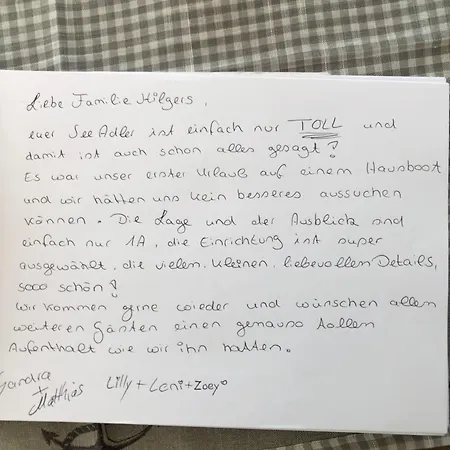 Liebe Familie Hilgers,
euer SeeAdler ist einfach nur TOLL und
damit ist auch schon alles gesagt!
Es war unser erster Urlaub auf einem Hausboot
und wir hätten uns kein besseres aussuchen
können. Die Lage und der Ausblick sind
einfach nur 1A, die Einrichtung ist super
ausgewählt, die vielen, kleinen, liebevollen Details,
sooo schön!
Wir kommen gerne wieder und wünschen allen
weiteren Gästen einen genauso tollen
Aufenthalt wie wir ihn hatten.
Sandra
+ Matthias Lilly + Leni + Zoey